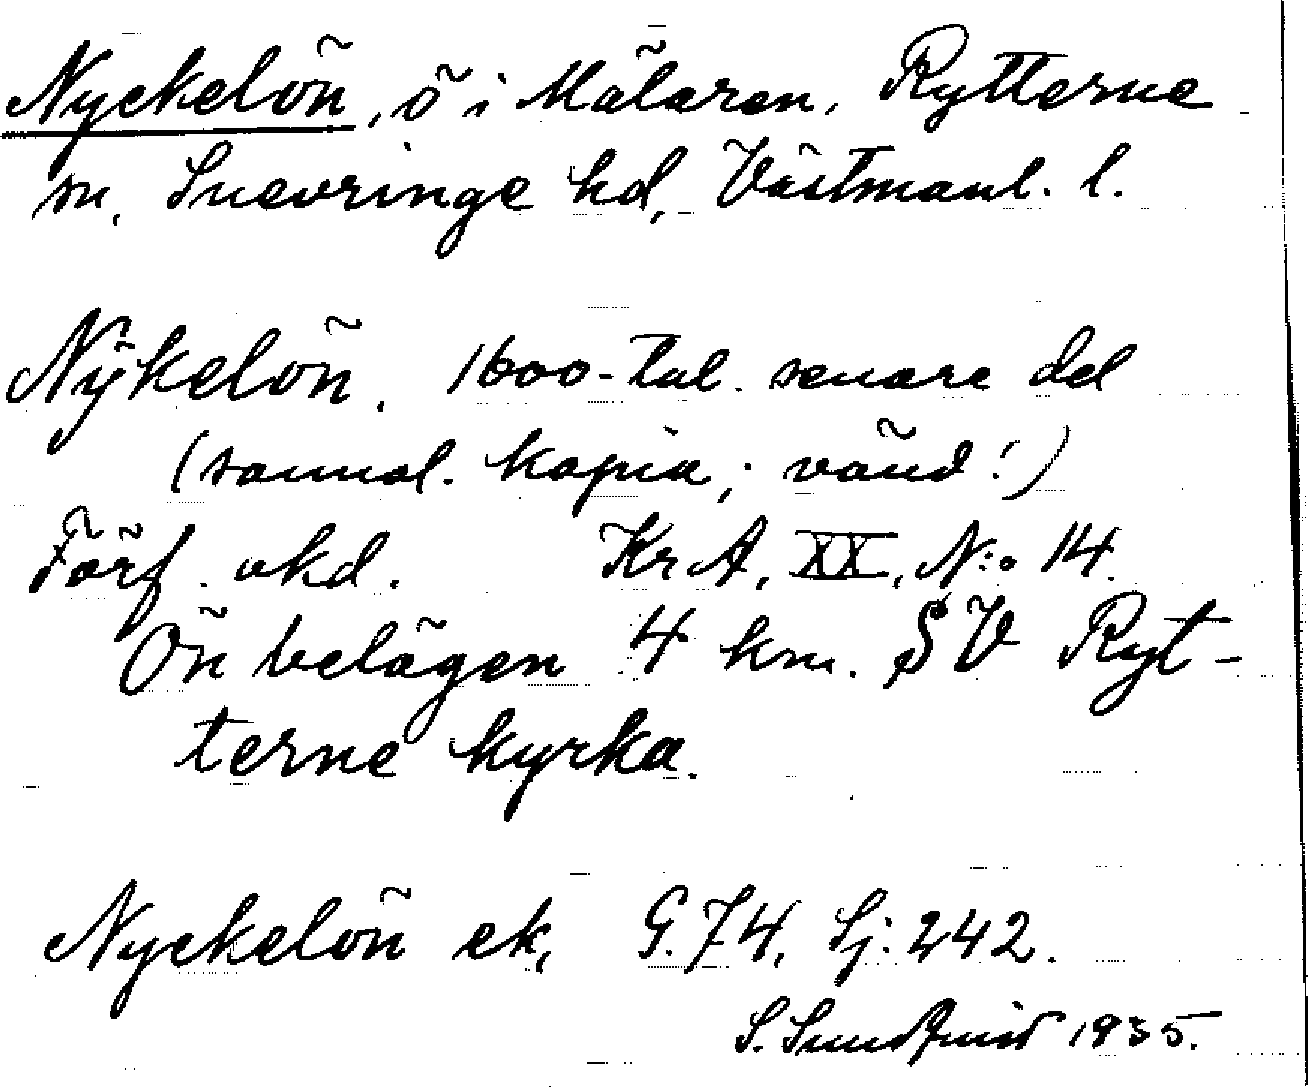 Nyckelön, ö i Mälaren, Rytterne
sn, Snevringe hd, Västmanl. l.
Nÿkelön. 1600-tal. senare del
(sannol. kopia; vänd!)
Förf. okd. KrA, XX, N:o 14.
Ön belägen 4 km. SV Ryt-
terne kyrka.
Nyckelön ek, G.74, Sj: 242.
S. Sundquist 1935.